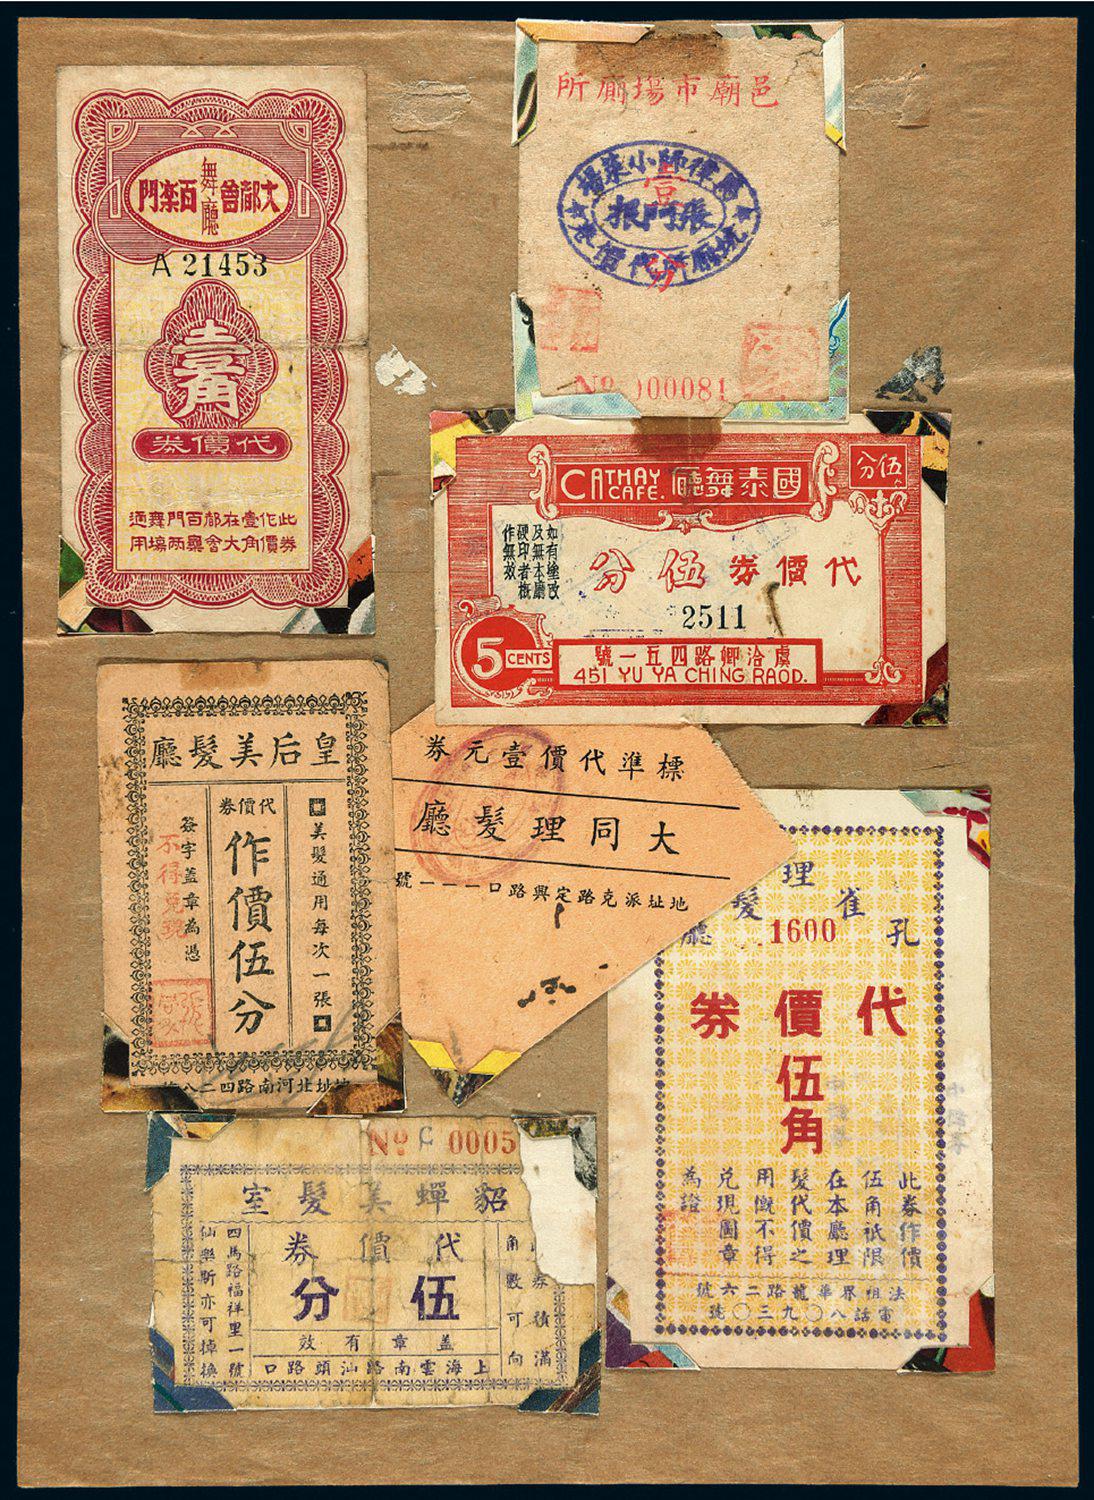 大都會
舞廳
百楽門
A 21453
壹角
代價券
此券作價壹角在大都會百樂門兩舞場通用
邑廟市場廁所
律師小菜場
張門根
壹分
Nº 000081
CATHAY CAFE.
國泰舞廳
伍分
代價券伍分
如有塗改
及無本廳
硬印者概
作無效
2511
5 CENTS
虞洽卿路四五一號
451 YU YA CHING RAOD.
皇后美髮廳
美髮通用每次一張
代價券
作價伍分
簽字蓋章為憑
不得兌現
地址北河南路四二八號
標準代價壹元券
大同理髮廳
地址派克路定興路口一一一號
孔雀理髮廳
1600
代價券
伍角
此券作價
伍角祇限
在本廳理
髮代價之
用慨不得
兌現圖章
為證
法租界華龍路二六號
電話八〇九三〇號
Nº C 0005
貂蟬美髮室
券積滿
角數可向
代價券
伍分
蓋章有效
上海雲南路汕頭路口
四馬路福祥里一號
仙樂斯亦可掉換